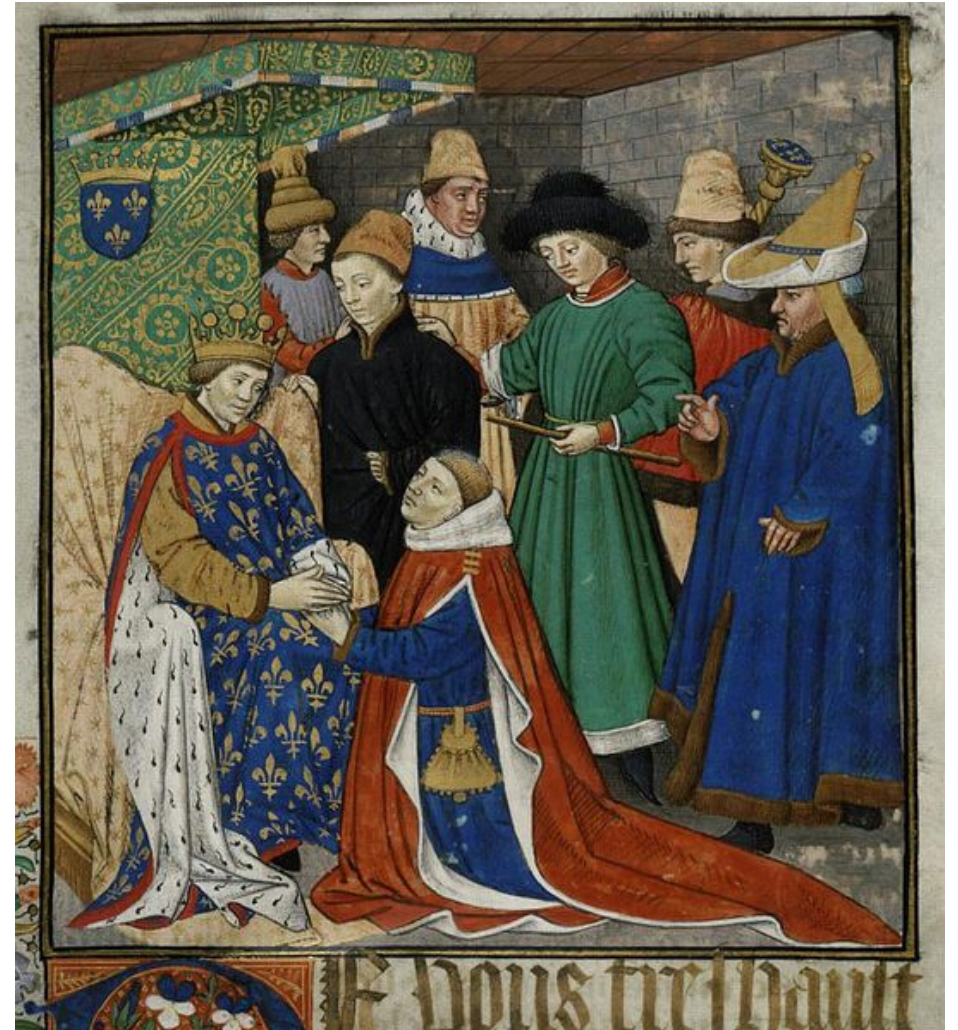 DE vous treshault